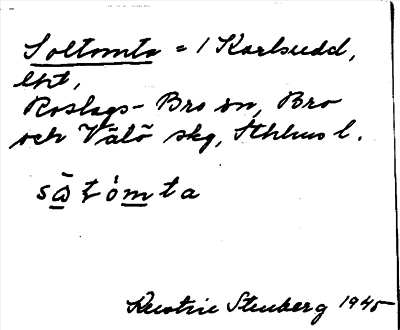 Soltomta = 1 Karlsudd,
lht,
Roslags-Bro sn, Bro
och Vätö skg, Sthlms l.
sā̲ t ó m̲ t a
Kerstin Stenberg 1945